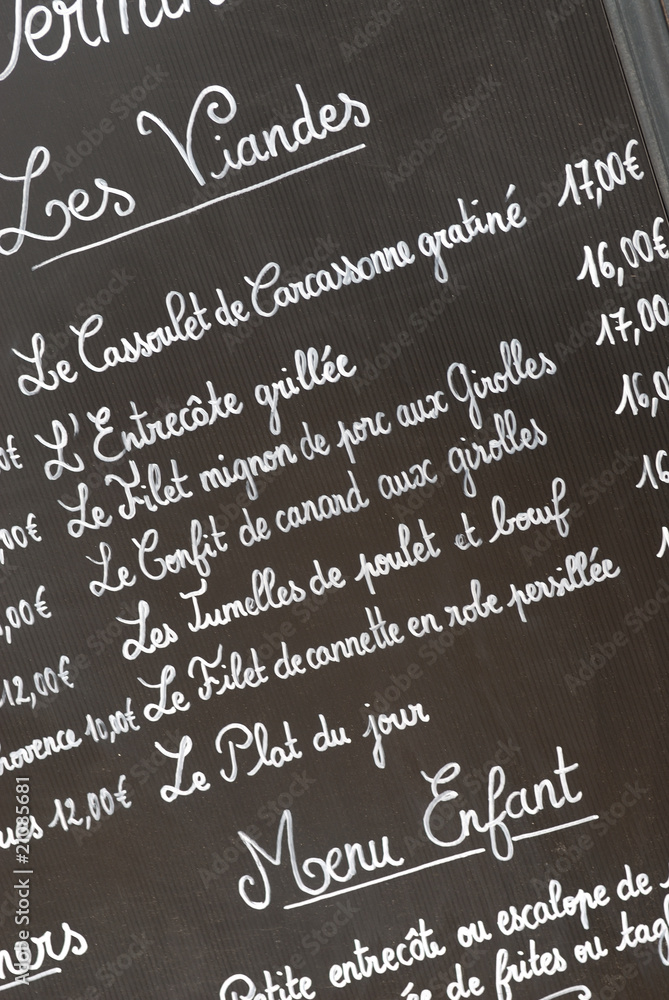 Les Viandes
Le Cassoulet de Carcassonne gratiné 17,00€
L'Entrecôte grillée 16,00€
Le Filet mignon de porc aux Girolles 17,00
Le Confit de canard aux girolles 16,0
Les Jumelles de poulet et bœuf 16
Le Filet de cannette en robe persillée 1
Le Plat du jour
Menu Enfant
Petite entrecôte ou escalope de
de frites ou
0€
,00€
,00€
12,00€
Provence 10,00€
12,00€
Adobe Stock | #21085681